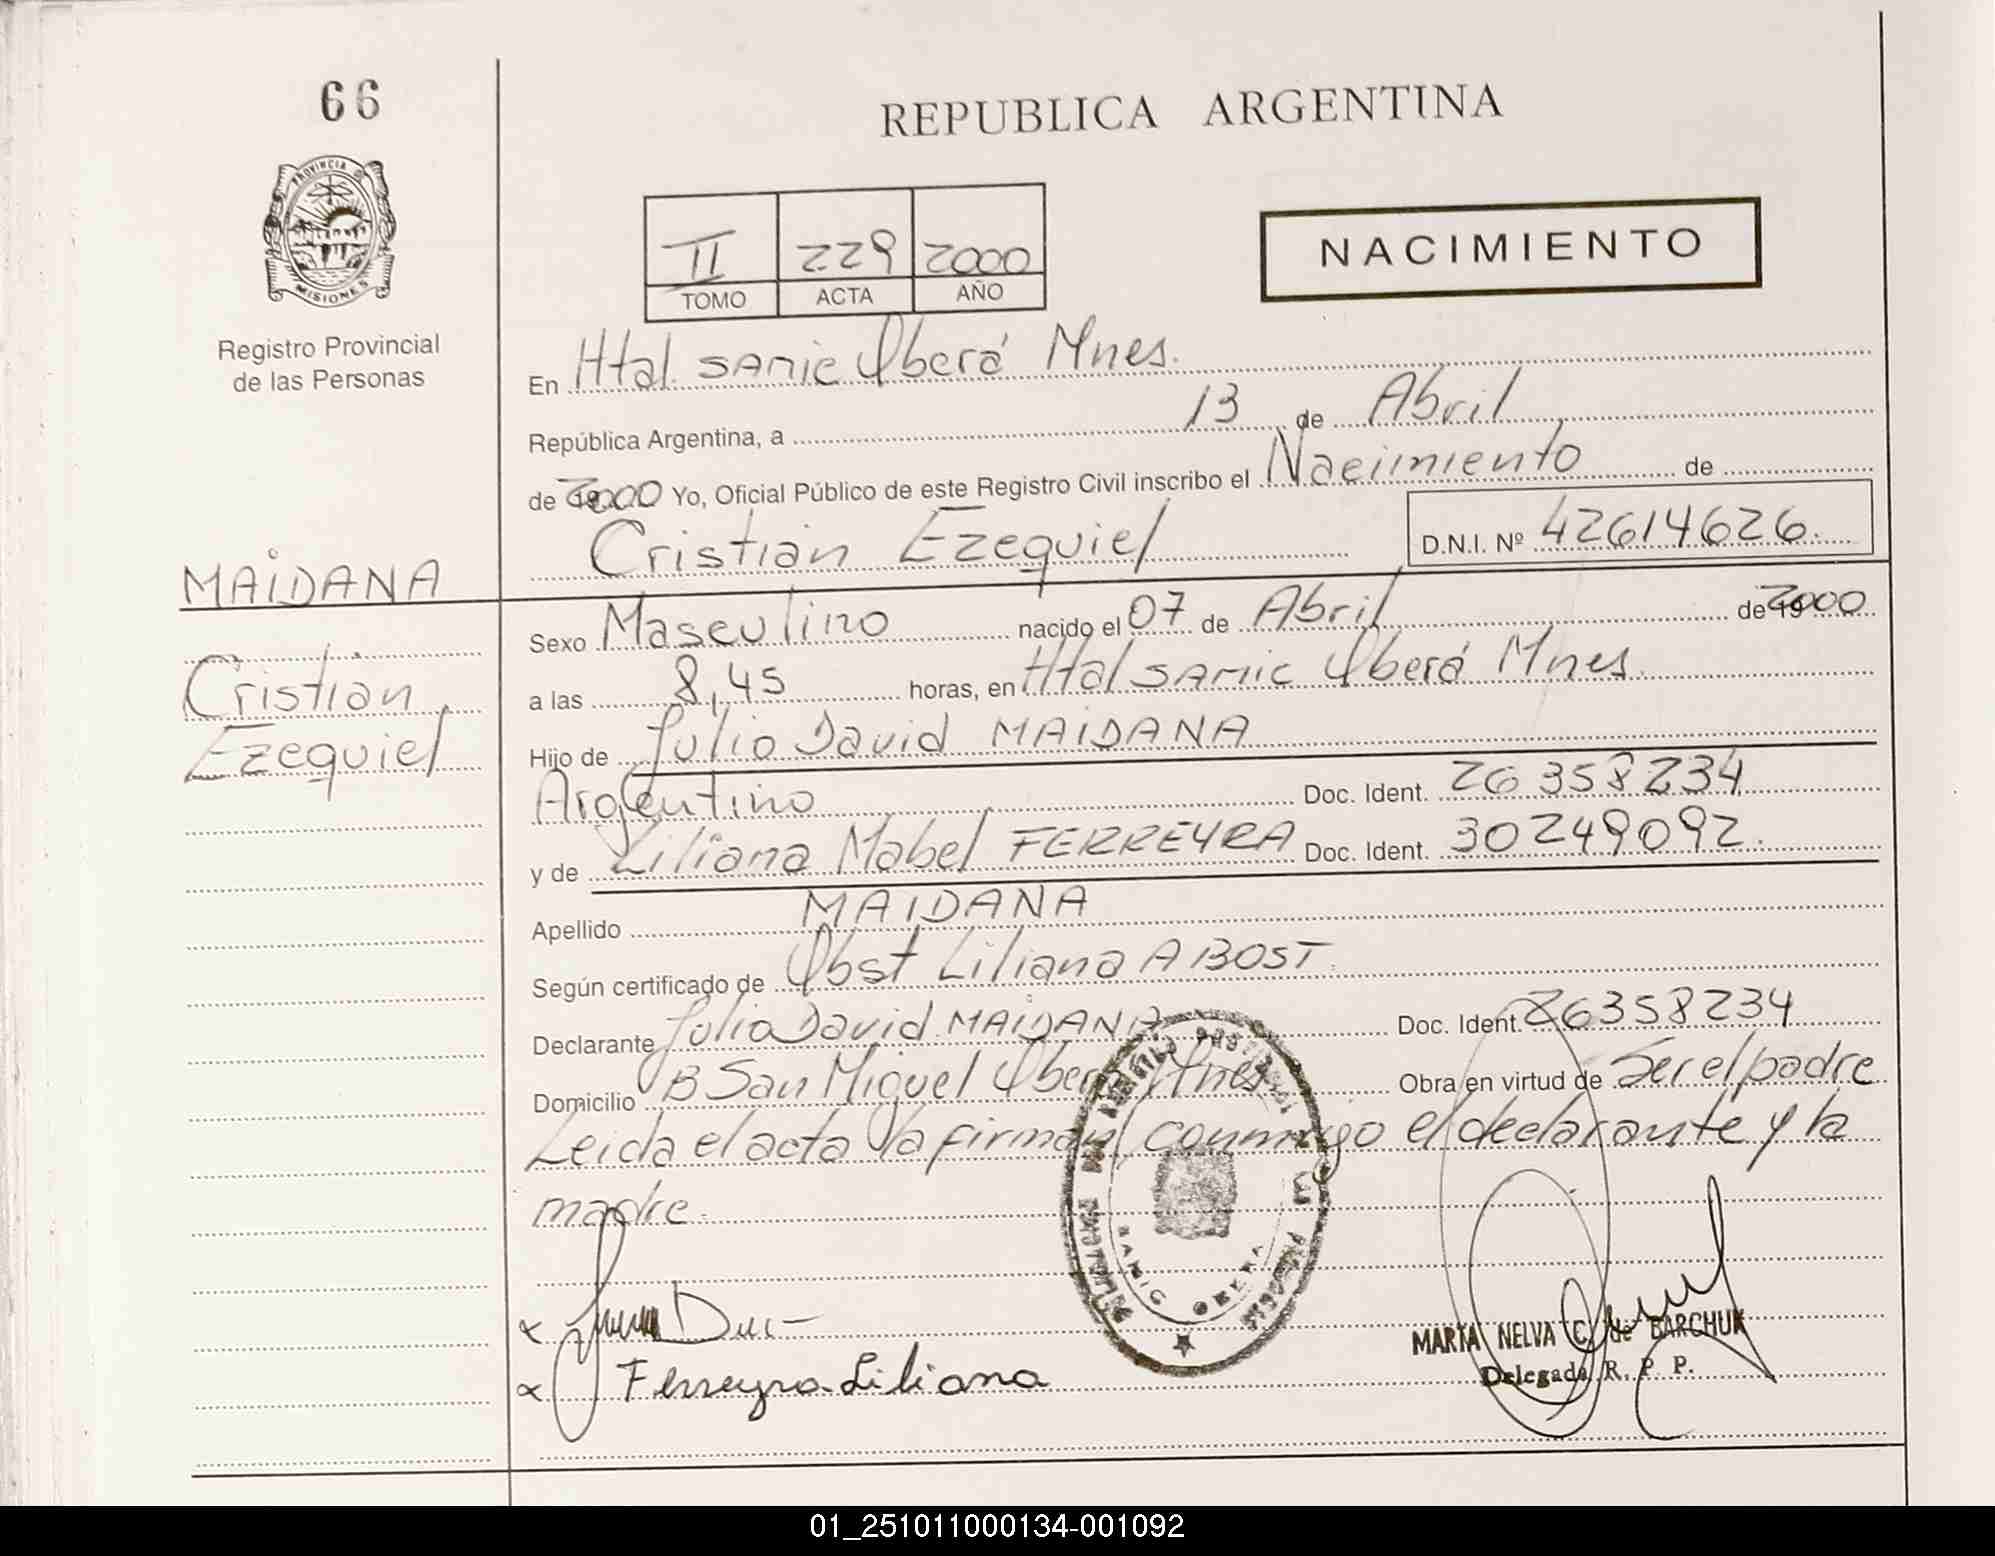 66
REPUBLICA ARGENTINA
PROVINCIA DE
MISIONES
II 229 2000
TOMO ACTA AÑO
NACIMIENTO
Registro Provincial
de las Personas
En Htal SAMIC Oberá Mnes.
República Argentina, a 13 de Abril
de 2000 Yo, Oficial Público de este Registro Civil inscribo el Nacimiento de
Cristian Ezequiel D.N.I. Nº 42614626.
MAIDANA
Cristian
Ezequiel
Sexo Masculino nacido el 07 de Abril de 2000
a las 8,45 horas, en Htal SAMIC Oberá Mnes.
Hijo de Julio David MAIDANA
Argentino Doc. Ident. 26358234
y de Liliana Mabel FERREYRA Doc. Ident. 30249092.
Apellido MAIDANA
Según certificado de Obst Liliana A BOST.
Declarante Julio David MAIDANA Doc. Ident. 26358234
Domicilio B San Miguel Oberá Mnes Obra en virtud de Ser el padre
Leida el acta la firman conmigo el declarante y la
madre.
SAMIC OBERA
Ferreyra Liliana
MARTA NELVA C. de BARCHUK
Delegada R. P. P.
01_251011000134-001092